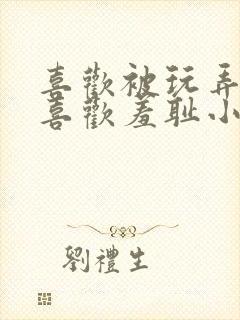 喜歡被玩弄
喜歡羞耻小
劉禮生